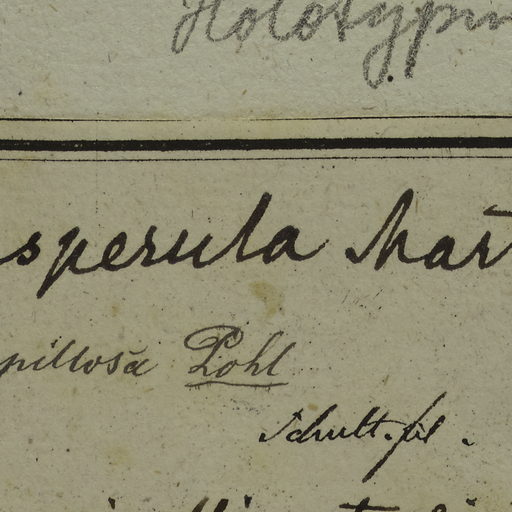 Holotypu
sperula Mart
pilloša Pohl
Schult. fil.